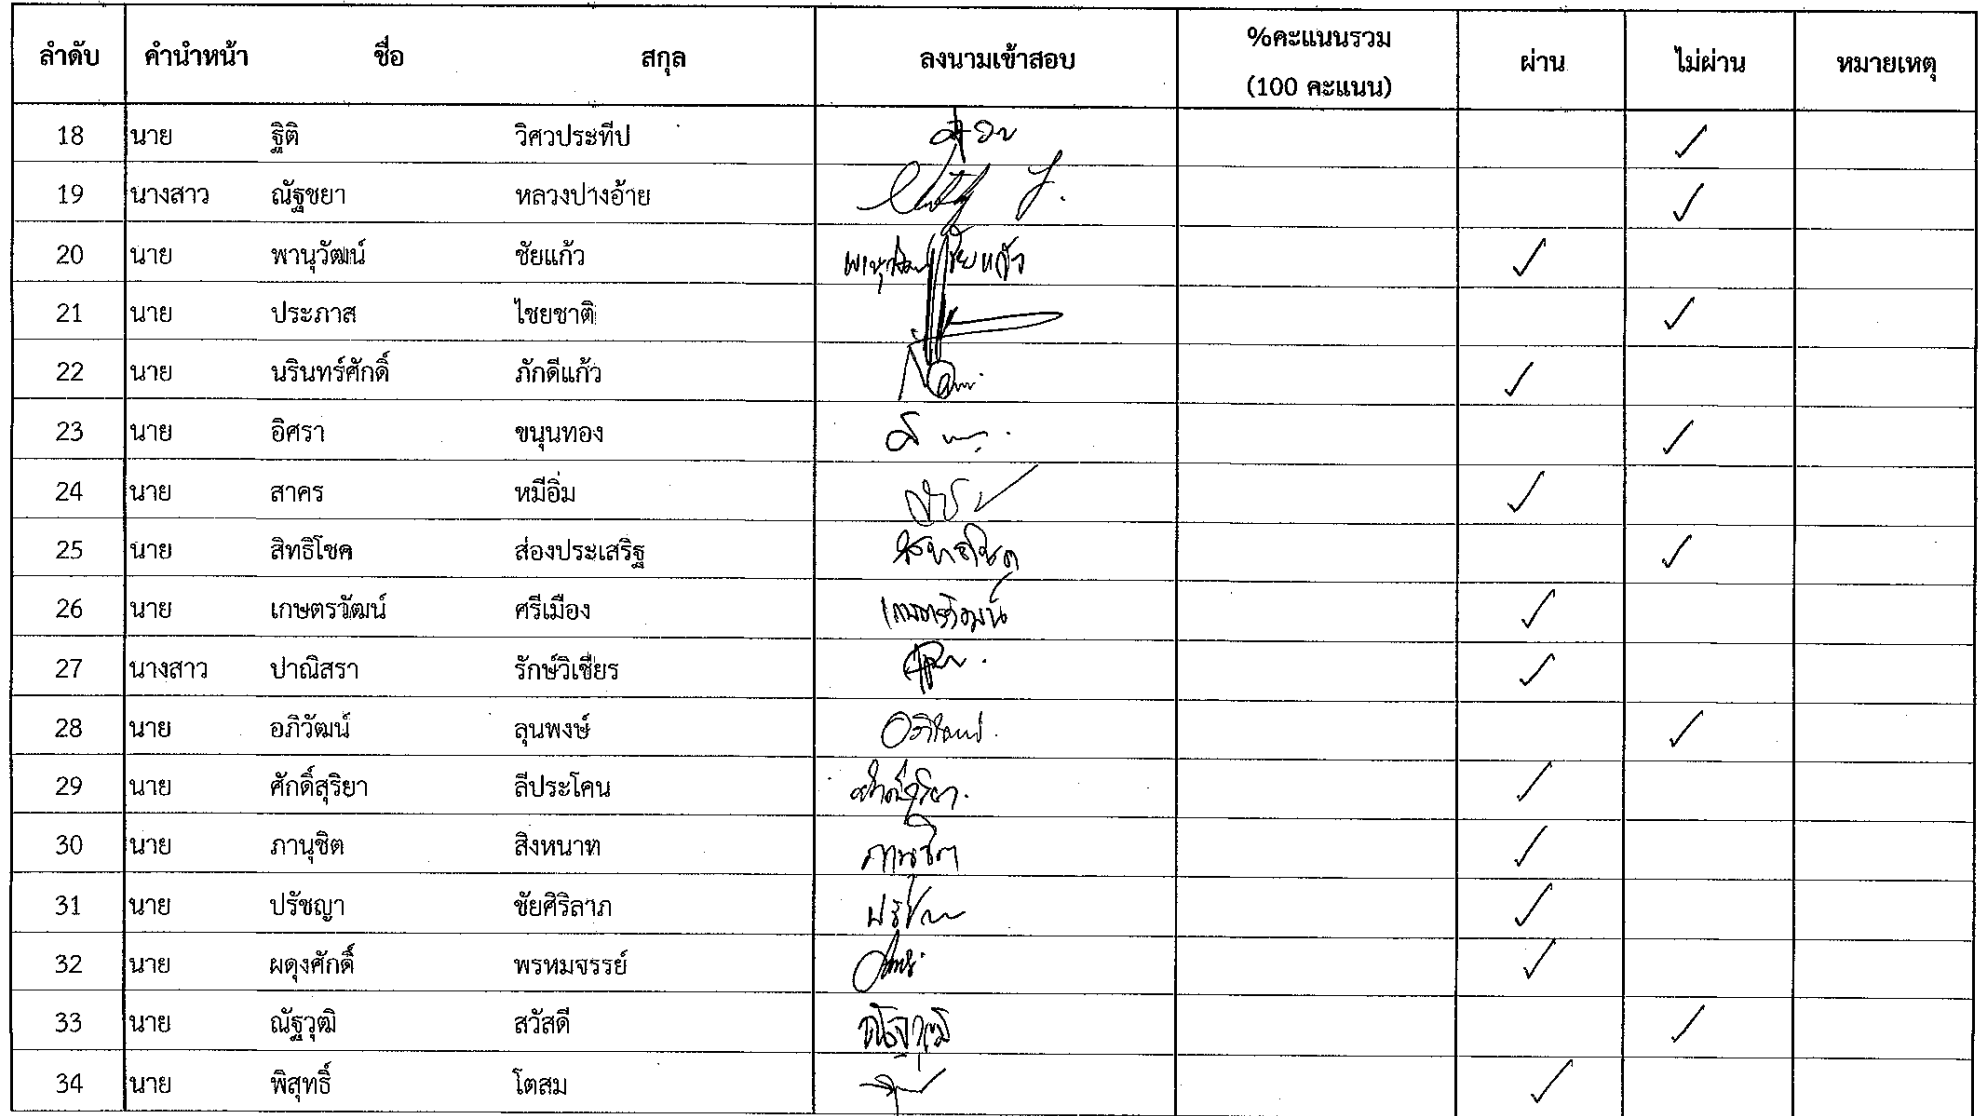 ลำดับ คำนำหน้า ชื่อ สกุล ลงนามเข้าสอบ %คะแนนรวม (100 คะแนน) ผ่าน ไม่ผ่าน หมายเหตุ
18 นาย ฐิติ วิศวประทีป ✓
19 นางสาว ณัฐชยา หลวงปางอ้าย ✓
20 นาย พานุวัฒน์ ชัยแก้ว พานุวัฒน์ ชัยแก้ว ✓
21 นาย ประภาส ไชยชาติ ✓
22 นาย นรินทร์ศักดิ์ ภักดีแก้ว ✓
23 นาย อิศรา ขนุนทอง ✓
24 นาย สาคร หมีอิ่ม ✓
25 นาย สิทธิโชค ส่องประเสริฐ สิทธิโชค ✓
26 นาย เกษตรวัฒน์ ศรีเมือง เกษตรวัฒน์ ✓
27 นางสาว ปาณิสรา รักษ์วิเชียร ✓
28 นาย อภิวัฒน์ ลุนพงษ์ อภิวัฒน์ ✓
29 นาย ศักดิ์สุริยา ลีประโคน ศักดิ์สุริยา ✓
30 นาย ภานุชิต สิงหนาท ภานุชิต ✓
31 นาย ปรัชญา ชัยศิริลาภ ✓
32 นาย ผดุงศักดิ์ พรหมจรรย์ ✓
33 นาย ณัฐวุฒิ สวัสดี ณัฐวุฒิ ✓
34 นาย พิสุทธิ์ โตสม ✓